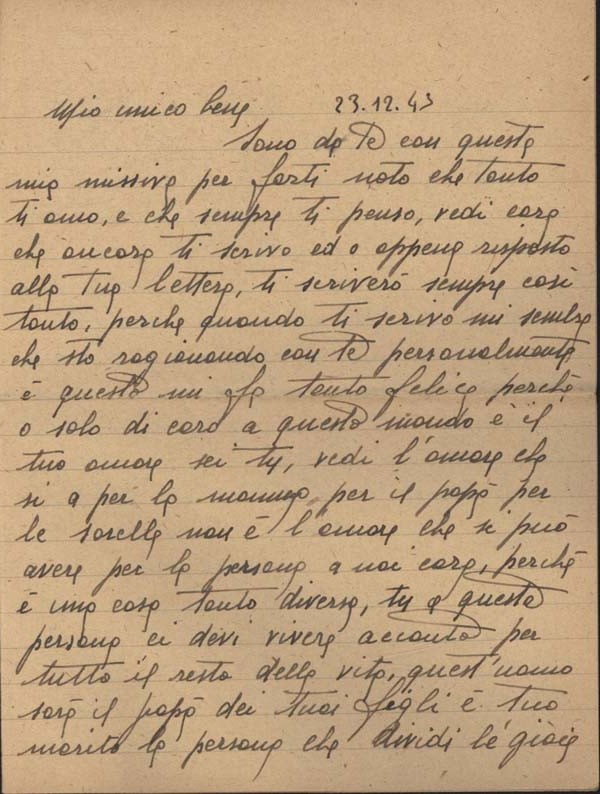 Mio unico bene 23.12.43
Sono da te con questa
mia missiva per farti noto che tanto
ti amo, e che sempre ti penso, vedi cara
che ancora ti scrivo ed o appena risposto
alla tua lettera, ti scriverò sempre così
tanto, perche quando ti scrivo mi sembra
che sto ragionando con te personalmente
è questo mi fa tanto felice perchè
o solo di caro a questo mondo è il
tuo amore sei tu, vedi l'amore che
si a per la mamma per il papà per
le sorelle non è l'amore che si può
avere per la persona a noi cara, perchè
è una cosa tanto diversa, tu a questa
persona ci devi vivere accanto per
tutto il resto della vita, quest'uomo
sarà il papà dei tuoi figli è tuo
marito la persona che dividi le gioie